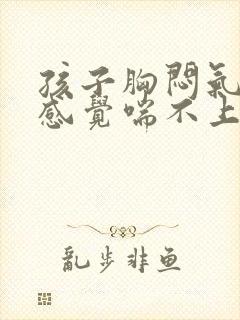 孩子胸悶氣
感覺喘不上
亂步非鱼